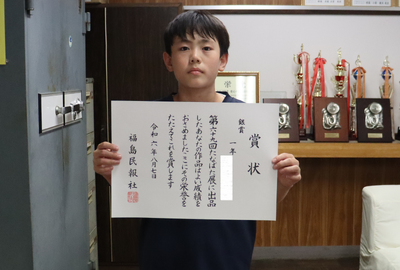 賞状
銀賞
一年
第六十九回たなばた展に出品
したあなたの作品はよい成績を
おさめました ここにその栄誉を
たたえこれを賞します
令和六年八月七日
福島民報社